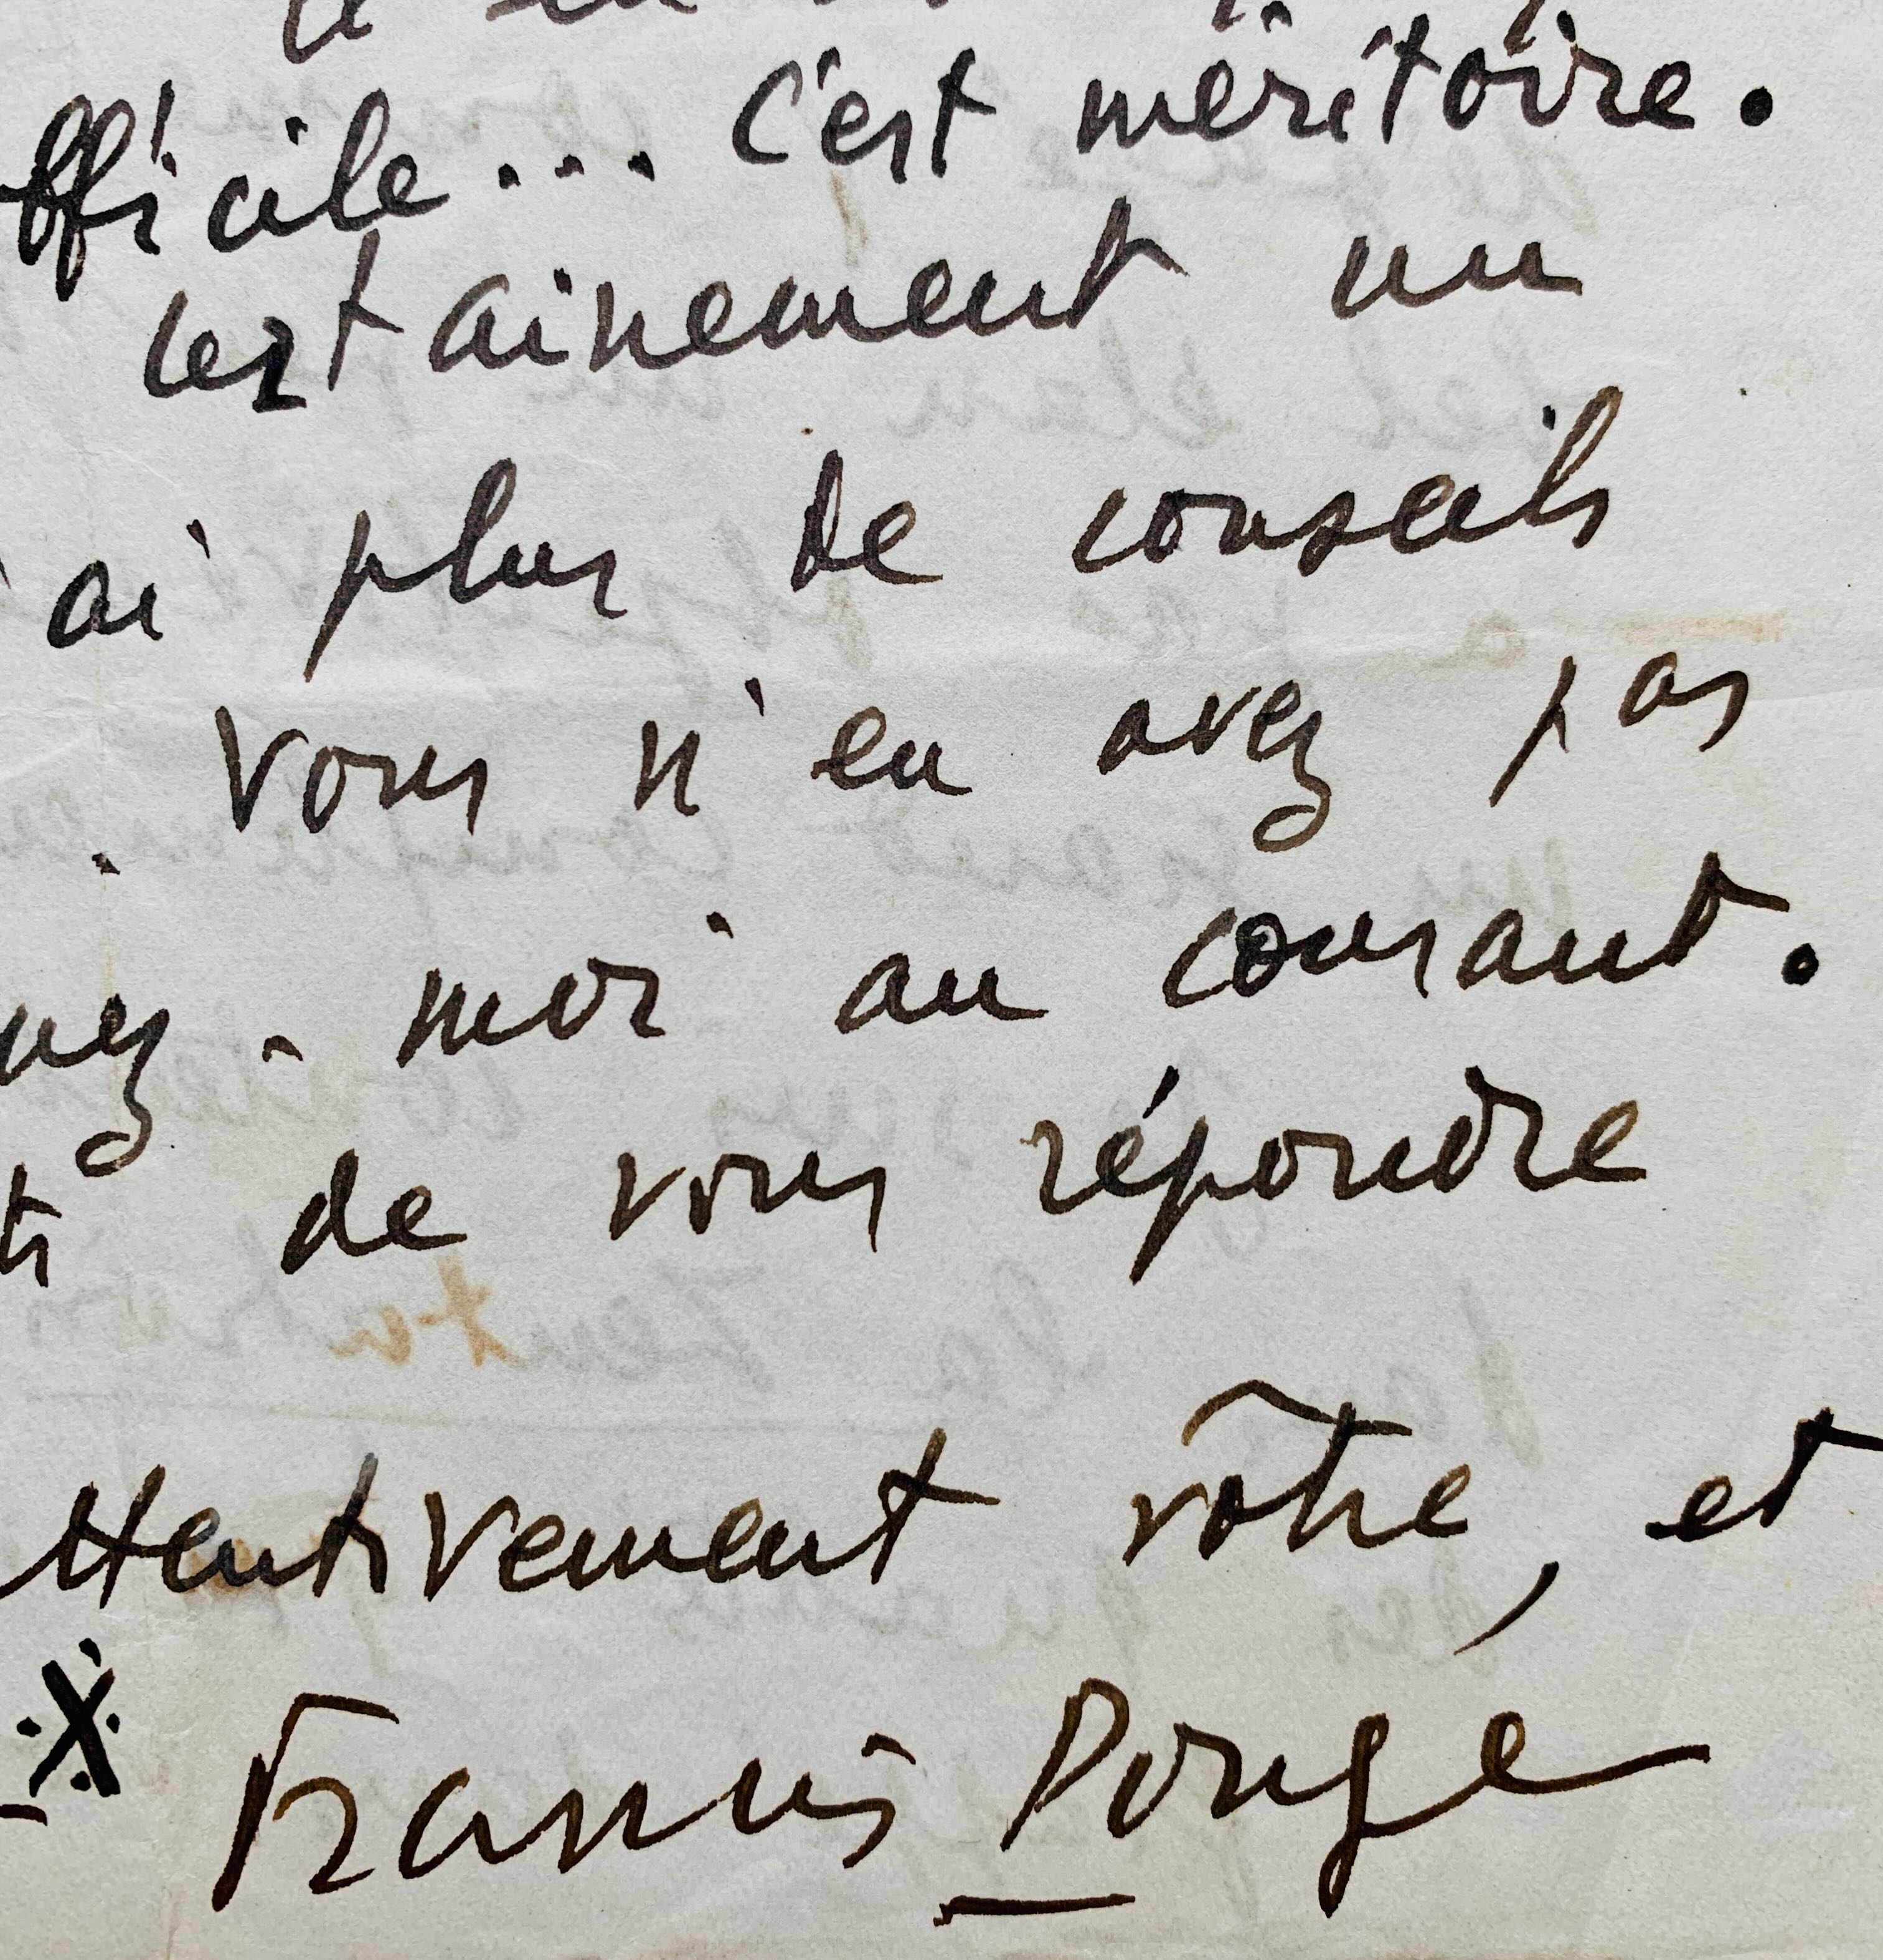 fficile... C'est méritoire.
certainement un
ai plus de conseils
vous n'en avez pas
nez-moi au courant.
de vous répondre
ttentivement vôtre, et
Francis Ponge